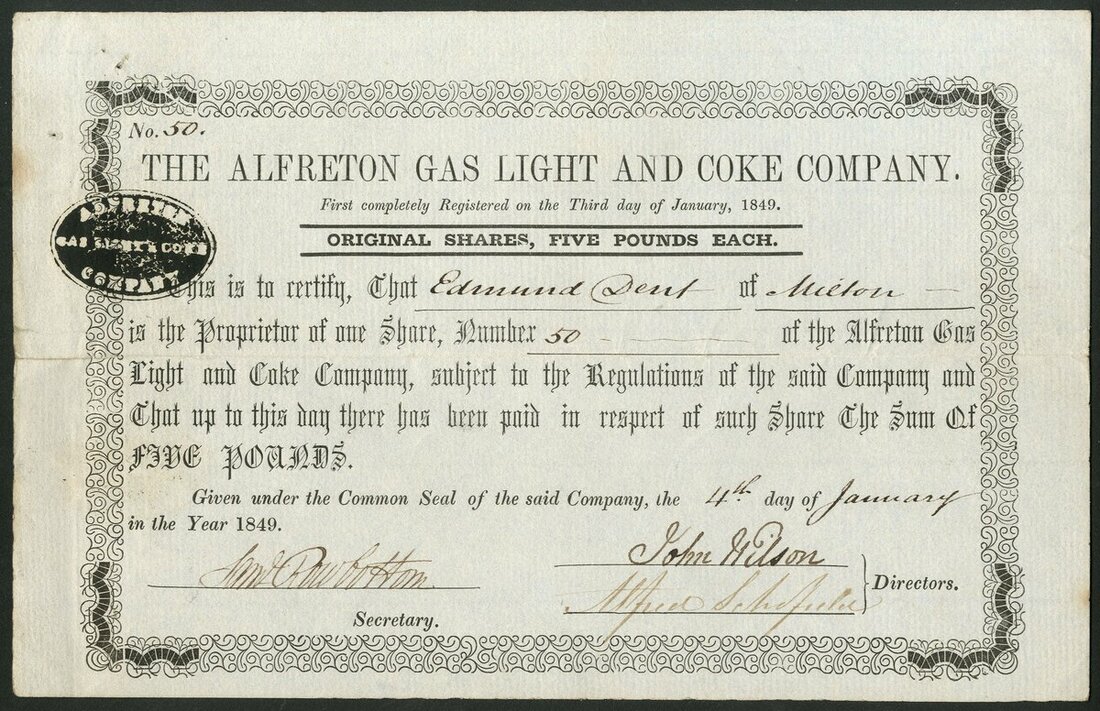 No. 50.
THE ALFRETON GAS LIGHT AND COKE COMPANY.
First completely Registered on the Third day of January, 1849.
ORIGINAL SHARES, FIVE POUNDS EACH.
ALFRETON
GAS LIGHT & COKE
COMPANY
This is to certify, That Edmund Dent of Milton
is the Proprietor of one Share, Number 50 of the Alfreton Gas
Light and Coke Company, subject to the Regulations of the said Company and
That up to this day there has been paid in respect of such Share The Sum Of
FIVE POUNDS.
Given under the Common Seal of the said Company, the 4th day of January
in the Year 1849.
John Wilson
Rowbottom
Alfred
Directors.
Secretary.